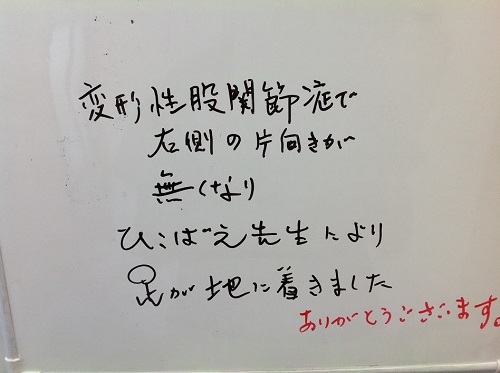 変形性股関節症で
右側の片向きが
無くなり
ひこばえ先生により
足が地に着きました
ありがとうございます。